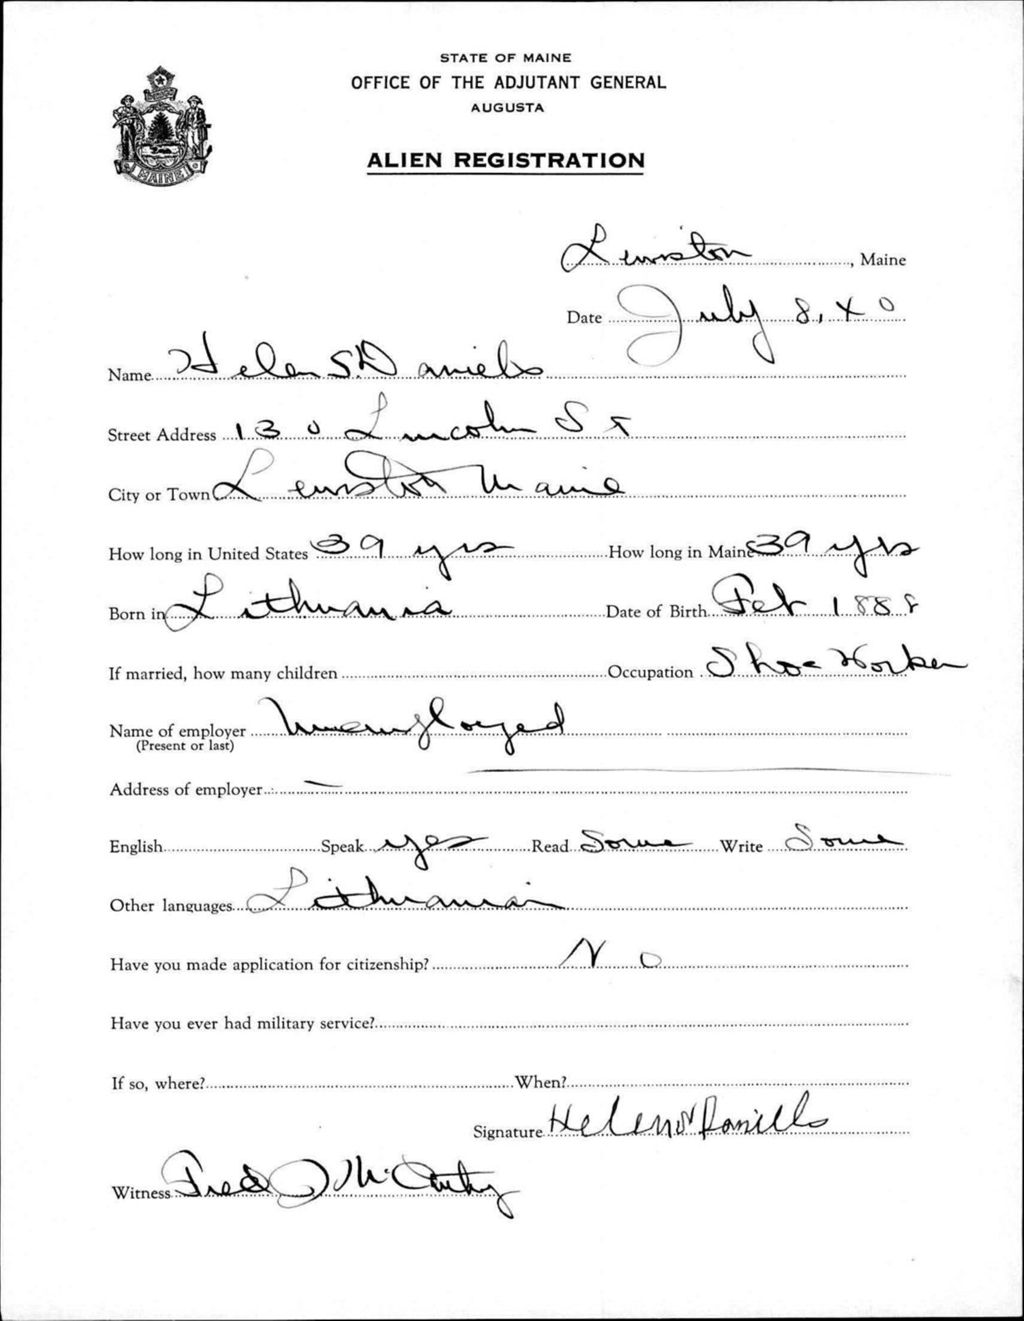 STATE OF MAINE
OFFICE OF THE ADJUTANT GENERAL
AUGUSTA
ALIEN REGISTRATION
MAINE
Lewiston, Maine
Date July 8, 40
Name Helen S. Daniels
Street Address 130 Lincoln St
City or Town Lewiston Maine
How long in United States 39 yrs How long in Maine 39 yrs
Born in Lithuania Date of Birth Feb 1888
If married, how many children Occupation Shoe Worker
Name of employer Unemployed
(Present or last)
Address of employer —
English Speak yes Read Some Write Some
Other languages Lithuanian
Have you made application for citizenship? No
Have you ever had military service?
If so, where? When?
Signature Helen Daniells
Witness Fred J McCarthy